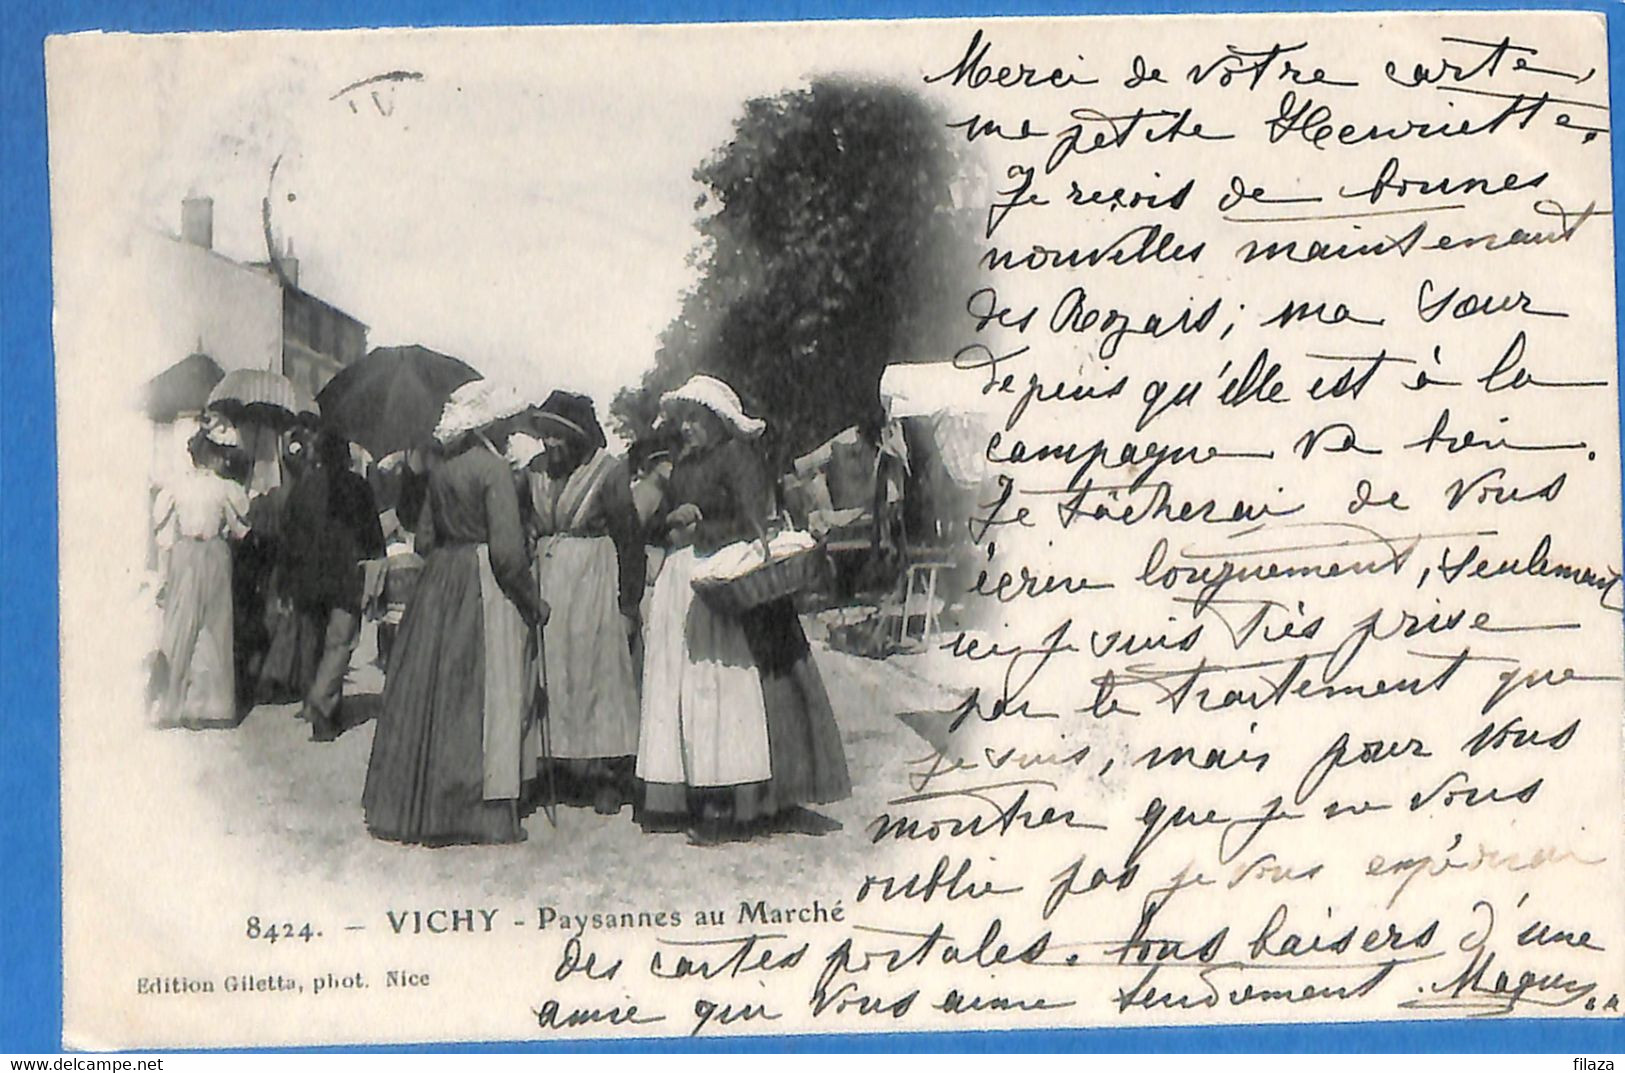 Merci de votre carte,
ma petite Henriette.
Je reçois de bonnes
nouvelles maintenant
des Rozais; ma sœur
depuis qu'elle est à la
campagne va bien.
Je tâcherai de vous
écrire longuement, seulement
ici je suis très prise
par le traitement que
je suis, mais pour vous
montrer que je ne vous
oublie pas je vous expédierai
des cartes postales. bons baisers d'une
amie qui vous aime tendrement.
8424. – VICHY - Paysannes au Marché
Edition Giletta, phot. Nice
filaza